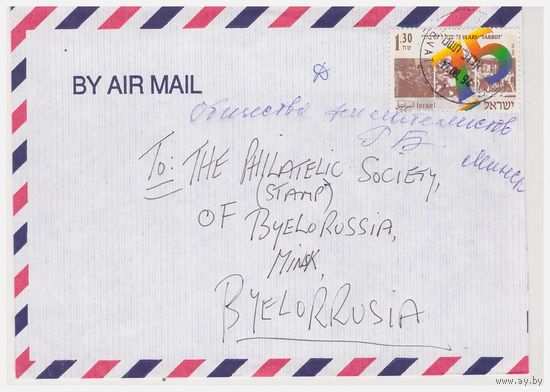 1.30
75 YEARS "TARBUT"
Israel ישראל
BY AIR MAIL
Общества филателистов
РБ.
г. Минск
To: THE PHILATELIC SOCIETY,
(STAMP)
OF BYELORUSSIA,
MINSK,
BYELORRUSIA
www.ay.by